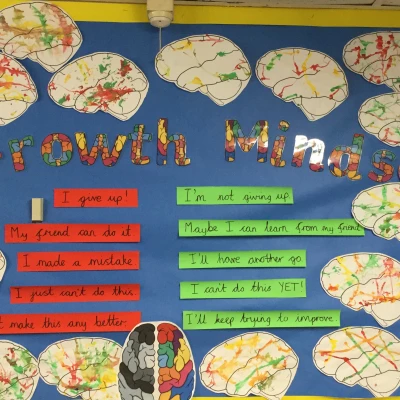 Growth Mindse
I give up!
I'm not giving up
My friend can do it
Maybe I can learn from my friend
I made a mistake
I'll have another go
I just can't do this
I can't do this YET!
t make this any better.
I'll keep trying to improve